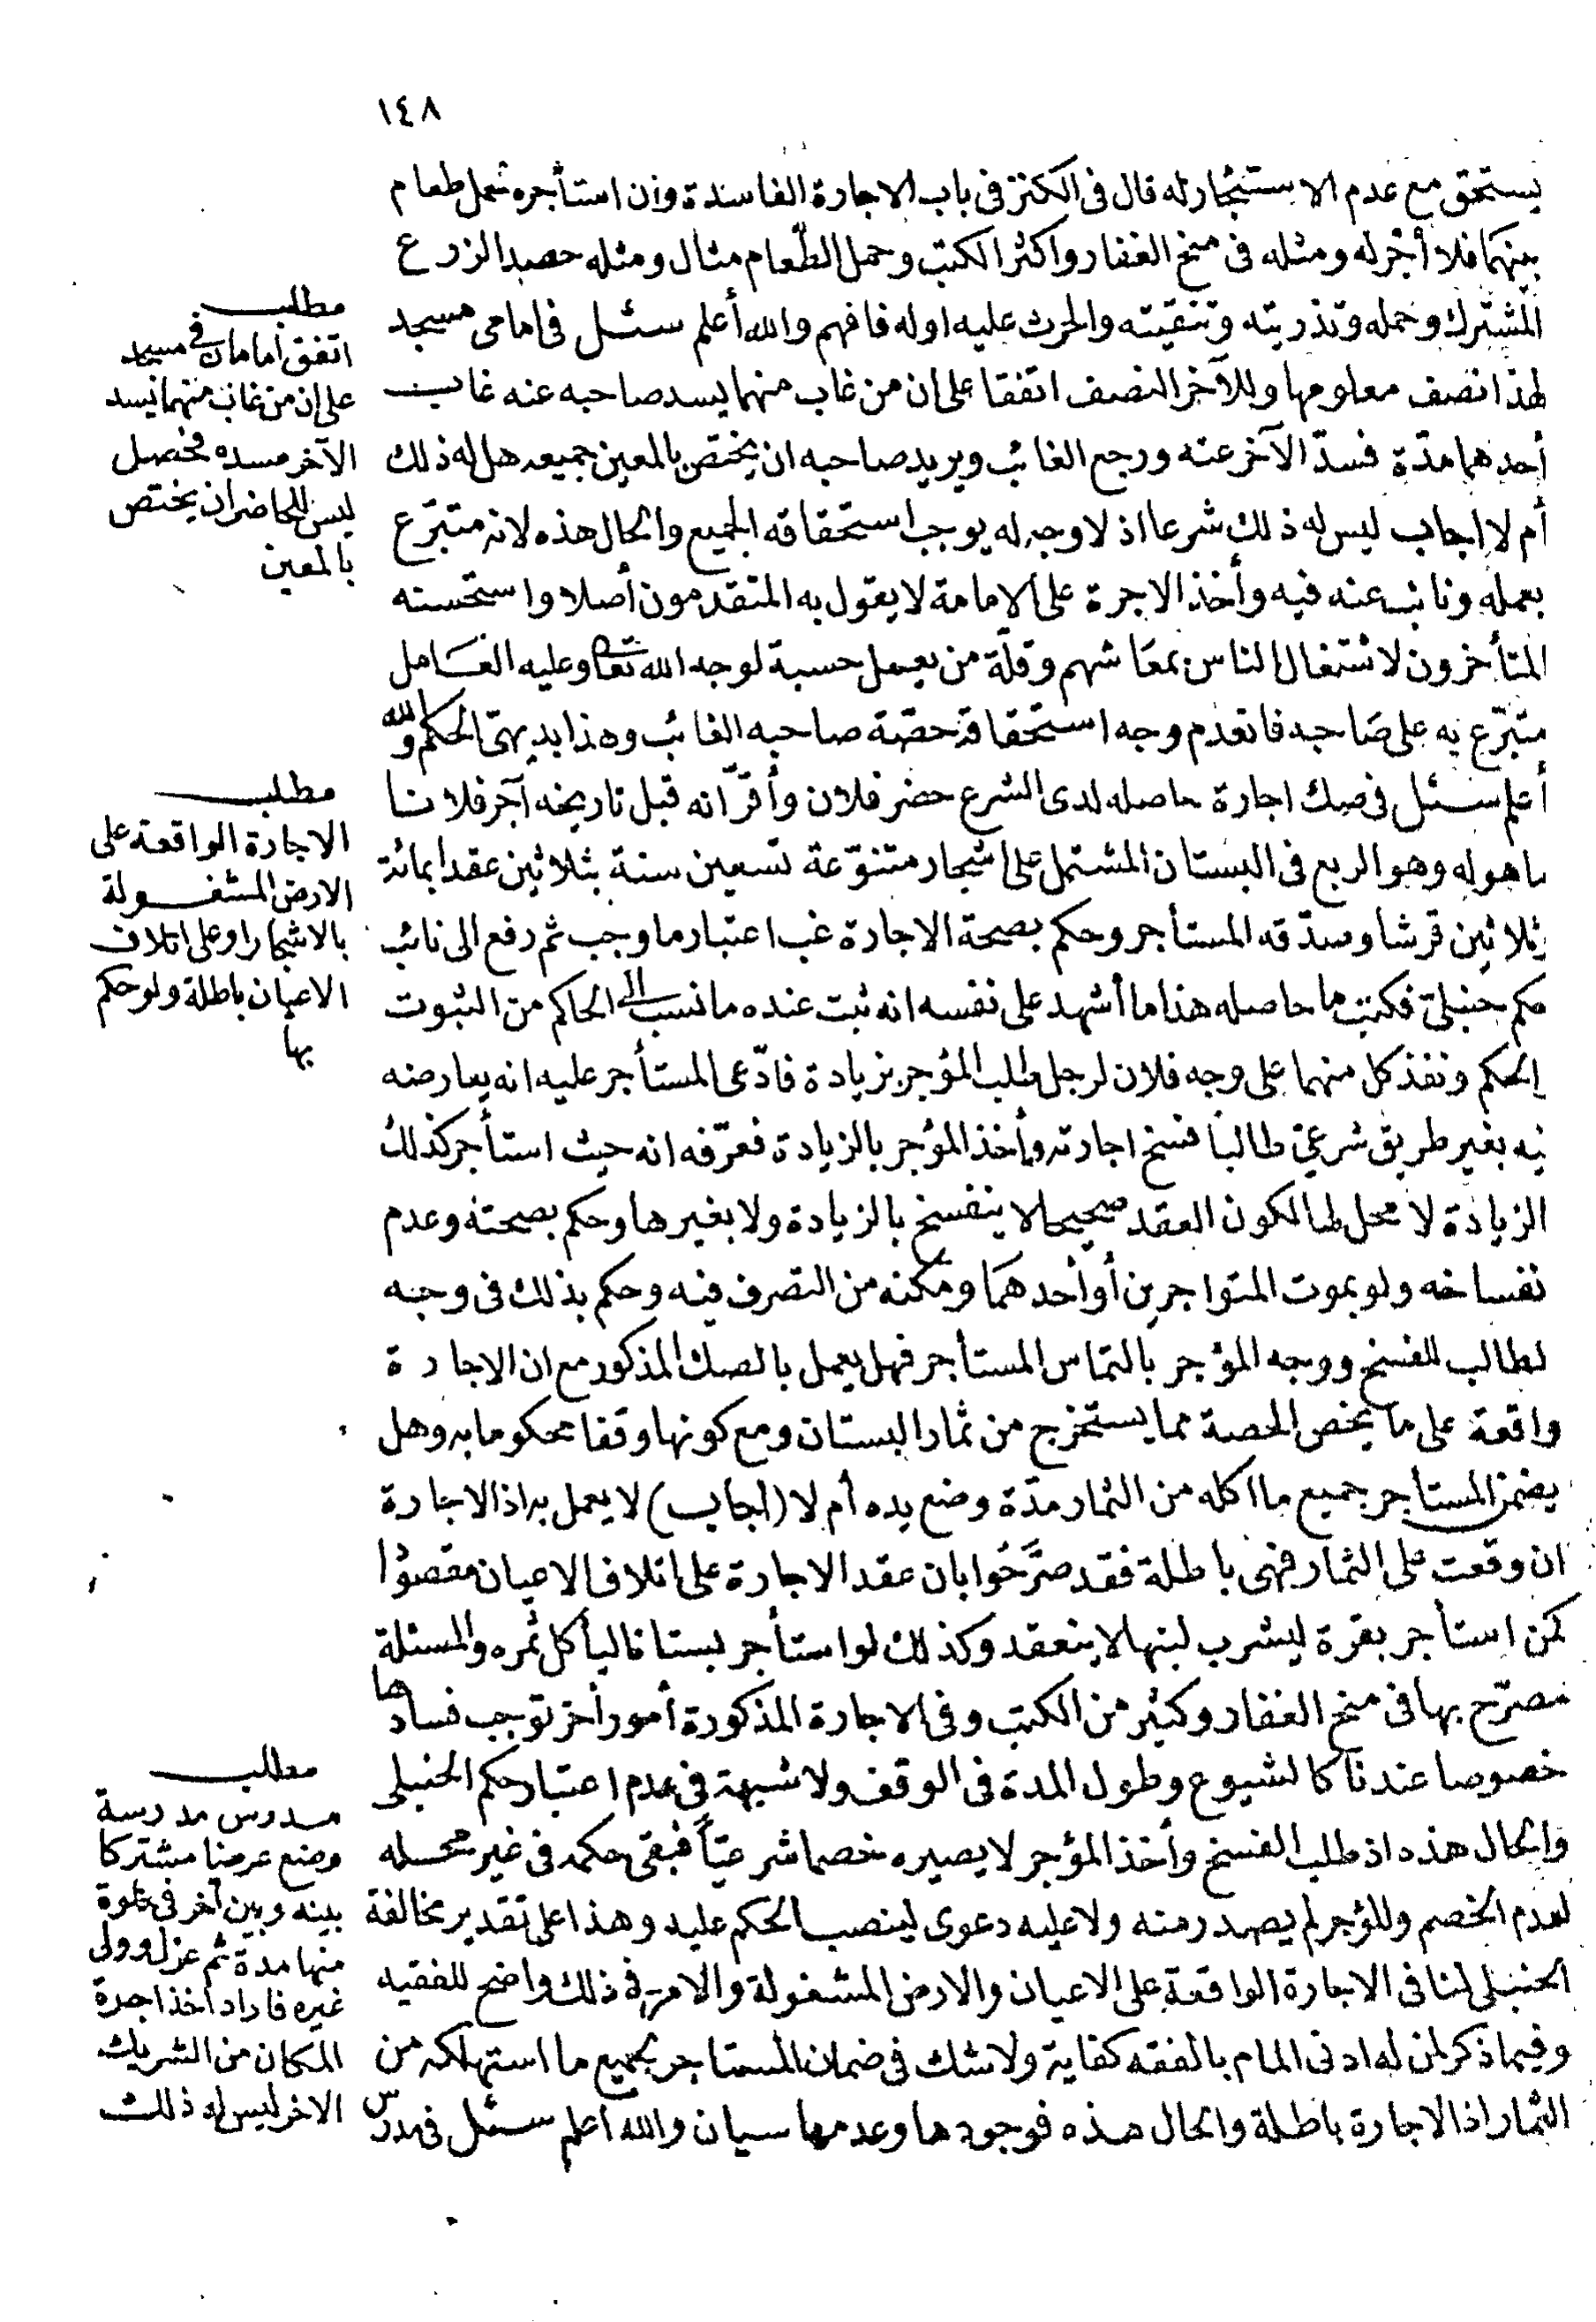 ١٤٨
يستحق مع عدم الاستئجار له قال فى الكنز فى باب الاجارة الفاسدة وان استأجره لحمل طعام
بينهما فلا أجر له ومثله فى منح الغفار واكثر الكتب وحمل الطّعام مثال ومثله حصد الزرع
المشترك وحمله وتذريته وتنقيته والحرث عليه اوله فافهم والله أعلم سئل فى امامى مسجد
لهذا نصف معلومها وللآخر النصف اتفقا على ان من غاب منهما يسد صاحبه عنه غاب
أحدهما مدّة فسدّ الآخر عنه ورجع الغائب ويريد صاحبه ان يختص بالمعين جميعه هل له ذلك
أم لا اجاب ليس له ذلك شرعا اذ لا وجه له يوجب استحقاقه الجميع والحال هذه لانه متبرّع
بعمله ونائب عنه فيه وأخذ الاجرة على الامامة لا يقول به المتقدمون أصلا واستحسنه
المتأخرون لاشتغال الناس بمعاشهم وقلّة من يعمل حسبة لوجه الله تعا وعليه العامل
متبرّع به على صاحبه فانعدم وجه استحقاقه حصّة صاحبه الغائب وهذا بديهىّ الحكم والله
أعلم سئل فى صك اجارة حاصله لدى الشرع حضر فلان وأقرّ انه قبل تاريخه آجر فلانا
ما هو له وهو الربع فى البستان المشتمل على اشجار متنوّعة تسعين سنة بثلاثين عقدا بمائة
وثلاثين قرشا وصدّقه المستأجر وحكم بصحة الاجارة غب اعتبار ما وجب ثم رفع الى نائب
حكم حنبلىّ فكتب ما حاصله هذا ما أشهد على نفسه انه ثبت عنده ما نسب الى الحاكم من الثبوت
والحكم ونفذ كل منهما على وجه فلان لرجل طلب المؤجر بزيادة فادّعى المستأجر عليه انه يعارضه
فيه بغير طريق شرعىّ طالبا فسخ اجارته وأخذ المؤجر بالزيادة فعرّفه انه حيث استأجر كذلك
الزيادة لا محل لها لكون العقد صحيحا لا ينفسخ بالزيادة ولا بغيرها وحكم بصحته وعدم
انفساخه ولو بموت المتواجرين أو أحدهما ومكنه من التصرف فيه وحكم بذلك فى وجه
الطالب للفسخ ووجه المؤجر بالتماس المستأجر فهل يعمل بالصك المذكور مع ان الاجارة
واقعة على ما يخص الحصة مما يستخرج من ثمار البستان ومع كونها وقفا محكوما به وهل
يضمن المستأجر جميع ما اكله من الثمار مدّة وضع يده أم لا (اجاب) لا يعمل به اذ الاجارة
ان وقعت على الثمار فهى باطلة فقد صرّحوا بان عقد الاجارة على اتلاف الاعيان مقصودا
كمن استأجر بقرة ليشرب لبنها لا ينعقد وكذلك لو استأجر بستانا ليأكل ثمره والمسئلة
مصرّح بها فى منح الغفار وكثير من الكتب وفى الاجارة المذكورة أمور أخر توجب فسادها
خصوصا عندنا كالشيوع وطول المدة فى الوقف ولا شبهة فى عدم اعتبار حكم الحنبلى
والحال هذه اذ طلب الفسخ وأخذ المؤجر لا يصيره خصما شرعيّاً فبقى حكمه فى غير محله
لعدم الخصم وللؤجر لم يصدر منه ولا عليه دعوى لينصب الحكم عليه وهذا على تقدير مخالفة
الحنبلى لنا فى الاجارة الواقعة على الاعيان والارض المشغولة والامر فى ذلك واضح للفقيه
وفيما ذكر لمن له ادنى المام بالفقه كفاية ولا شك فى ضمان المستاجر بجميع ما استهلكه من
الثمار اذ الاجارة باطلة والحال هذه فوجودها وعدمها سيان والله اعلم سئل فى مدرس
مطلب
اتفق امامان فى مسجد
على ان من غاب منهما يسد
الآخر مسده فحصل
ليس للحاضر ان يختص
بالمعين
مطلب
الاجارة الواقعة على
الارض المشغولة
بالاشجار او على اتلاف
الاعيان باطلة ولو حكم
بها
مطلب
مدرس مدرسة
وضع عرضا مشتركا
بينه وبين آخر فى خلوة
منها مدة ثم عزل وولى
غيره فاراد اخذ اجرة
المكان من الشريك
الاخر ليس له ذلك